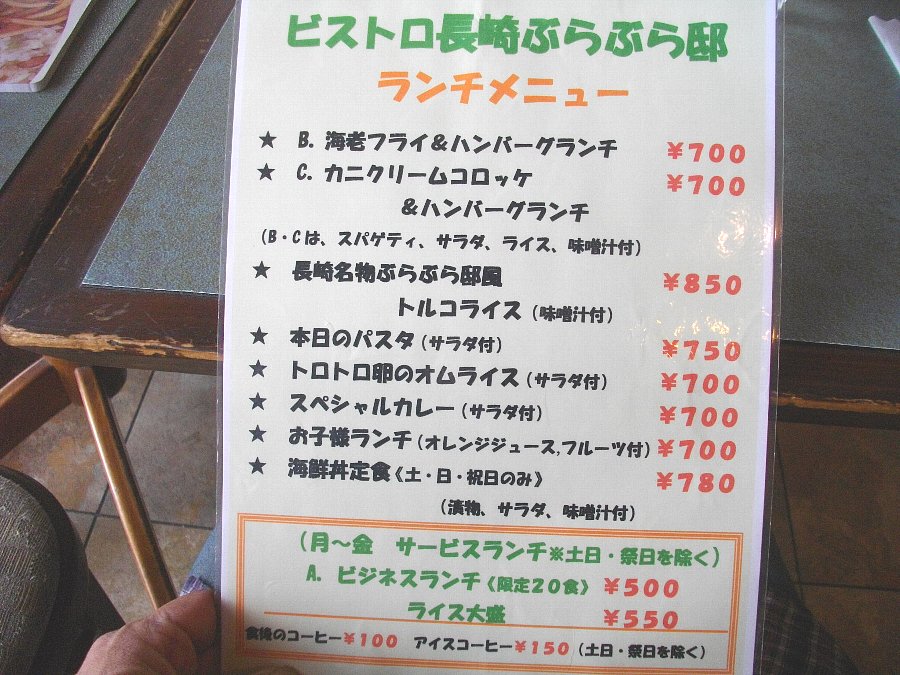 ビストロ長崎ぶらぶら邸
ランチメニュー
★ B. 海老フライ&ハンバーグランチ ¥700
★ C. カニクリームコロッケ ¥700
&ハンバーグランチ
(B・Cは、スパゲティ、サラダ、ライス、味噌汁付)
★ 長崎名物ぶらぶら邸風 ¥850
トルコライス (味噌汁付)
★ 本日のパスタ (サラダ付) ¥750
★ トロトロ卵のオムライス (サラダ付) ¥700
★ スペシャルカレー (サラダ付) ¥700
★ お子様ランチ (オレンジジュース,フルーツ付) ¥700
★ 海鮮丼定食《土・日・祝日のみ》 ¥780
(漬物、サラダ、味噌汁付)
(月~金 サービスランチ※土日・祭日を除く)
A. ビジネスランチ《限定20食》 ¥500
ライス大盛 ¥550
食後のコーヒー¥100 アイスコーヒー¥150 (土日・祭日を除く)